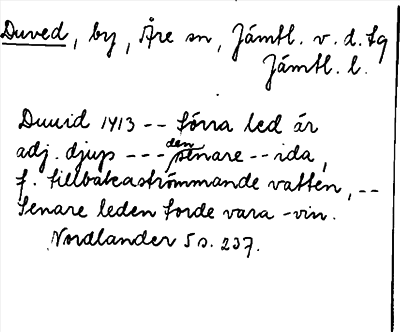 Duved, by, Åre sn, Jämtl. v. d. tg
Jämtl. l.
Duuid 1413 -- förra led är
adj. djup ---- den senare -- ida,
f. tillbakaströmmande vatten, --
Senare leden torde vara -vin.
Nordlander 5 s. 237.